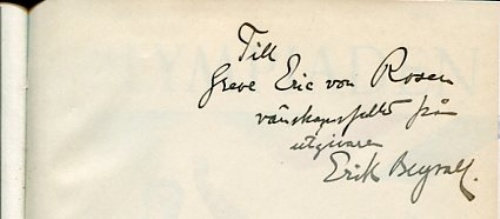 Till
Greve Eric von Rosen
vänskapsfullt från
utgivaren
Erik Bergvall.